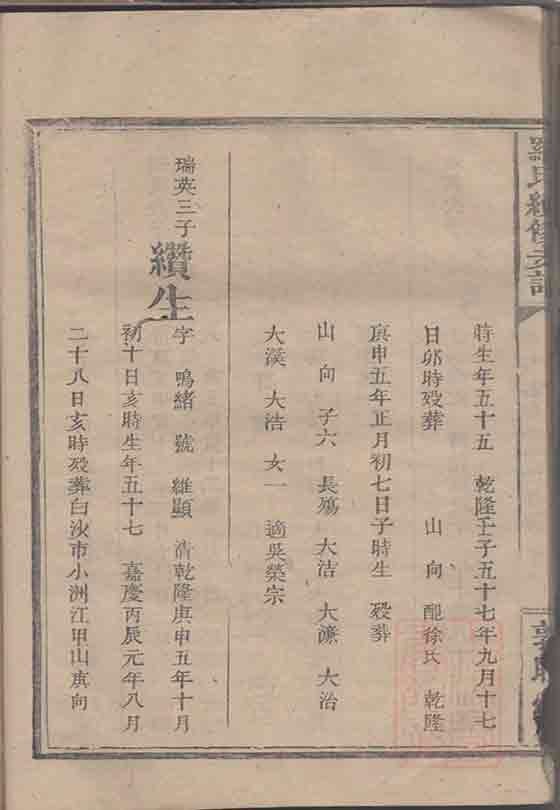 羅氏續修支譜
時生年五十五 乾隆壬子五十七年九月十七
日卯時歿葬 山 向 配徐氏 乾隆
庚申五年正月初七日子時生 歿葬
山 向 子六 長殤 大洁 大濂 大治
大漢 大浩 女一 適吳榮宗
瑞英三子 纘生
字 鳴緒 號 維顯 清乾隆庚申五年十月
初十日亥時生年五十七 嘉慶丙辰元年八月
二十八日亥時歿葬白沙市小洲江甲山庚向